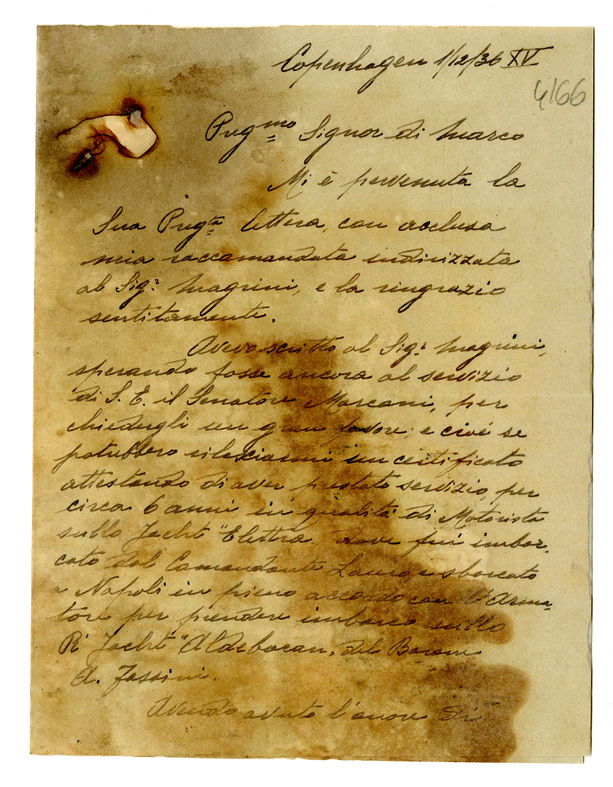 Copenhagen 1/12/36 XV
4166
Preg.mo Signor di Marco
Mi è pervenuta la
Sua Preg.ta lettera, con acclusa
mia raccomandata indirizzata
al Sig.r Magrini, e la ringrazio
sentitamente.
Avevo scritto al Sig.r Magrini,
sperando fosse ancora al servizio
di S. E. il Senatore Marconi, per
chiedergli un gran favore: e cioè se
potrebbero rilasciarmi un certificato
attestando di aver prestato servizio, per
circa 6 anni in qualità di Motorista
sullo Jacht "Elettra, dove fui imbar-
cato dal Comandante Lauro e sbarcato
a Napoli in pieno accordo con l'Arma-
tore per prendere imbarco sullo
R. Jacht "Aldebaran, del Barone
A. Fassini.
Avendo avuto l'onore di